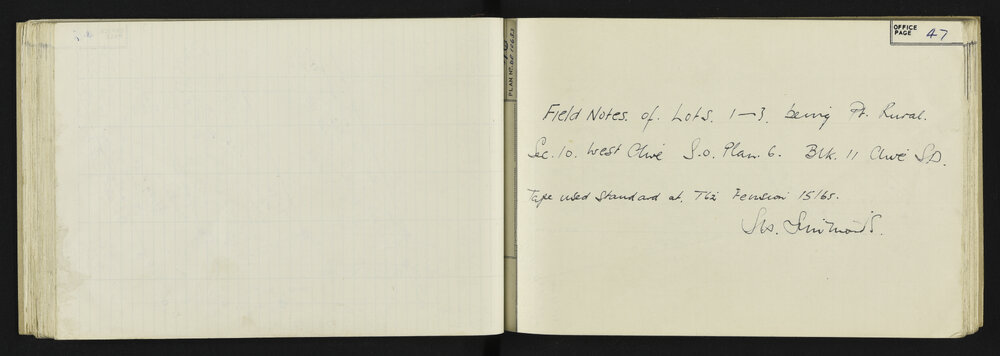 OFFICE PAGE 47
PLAN No. DP
Field Notes. of. Lots. 1—3. being Pt. Rural.
Sec. 10. West Clive S.O. Plan. 6. Blk. 11 Clive S.D.
Tape used Standard at. 712 Tension 15 lbs.